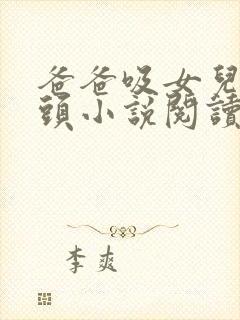 爸爸吸女兒
頭小說閱讀
李爽